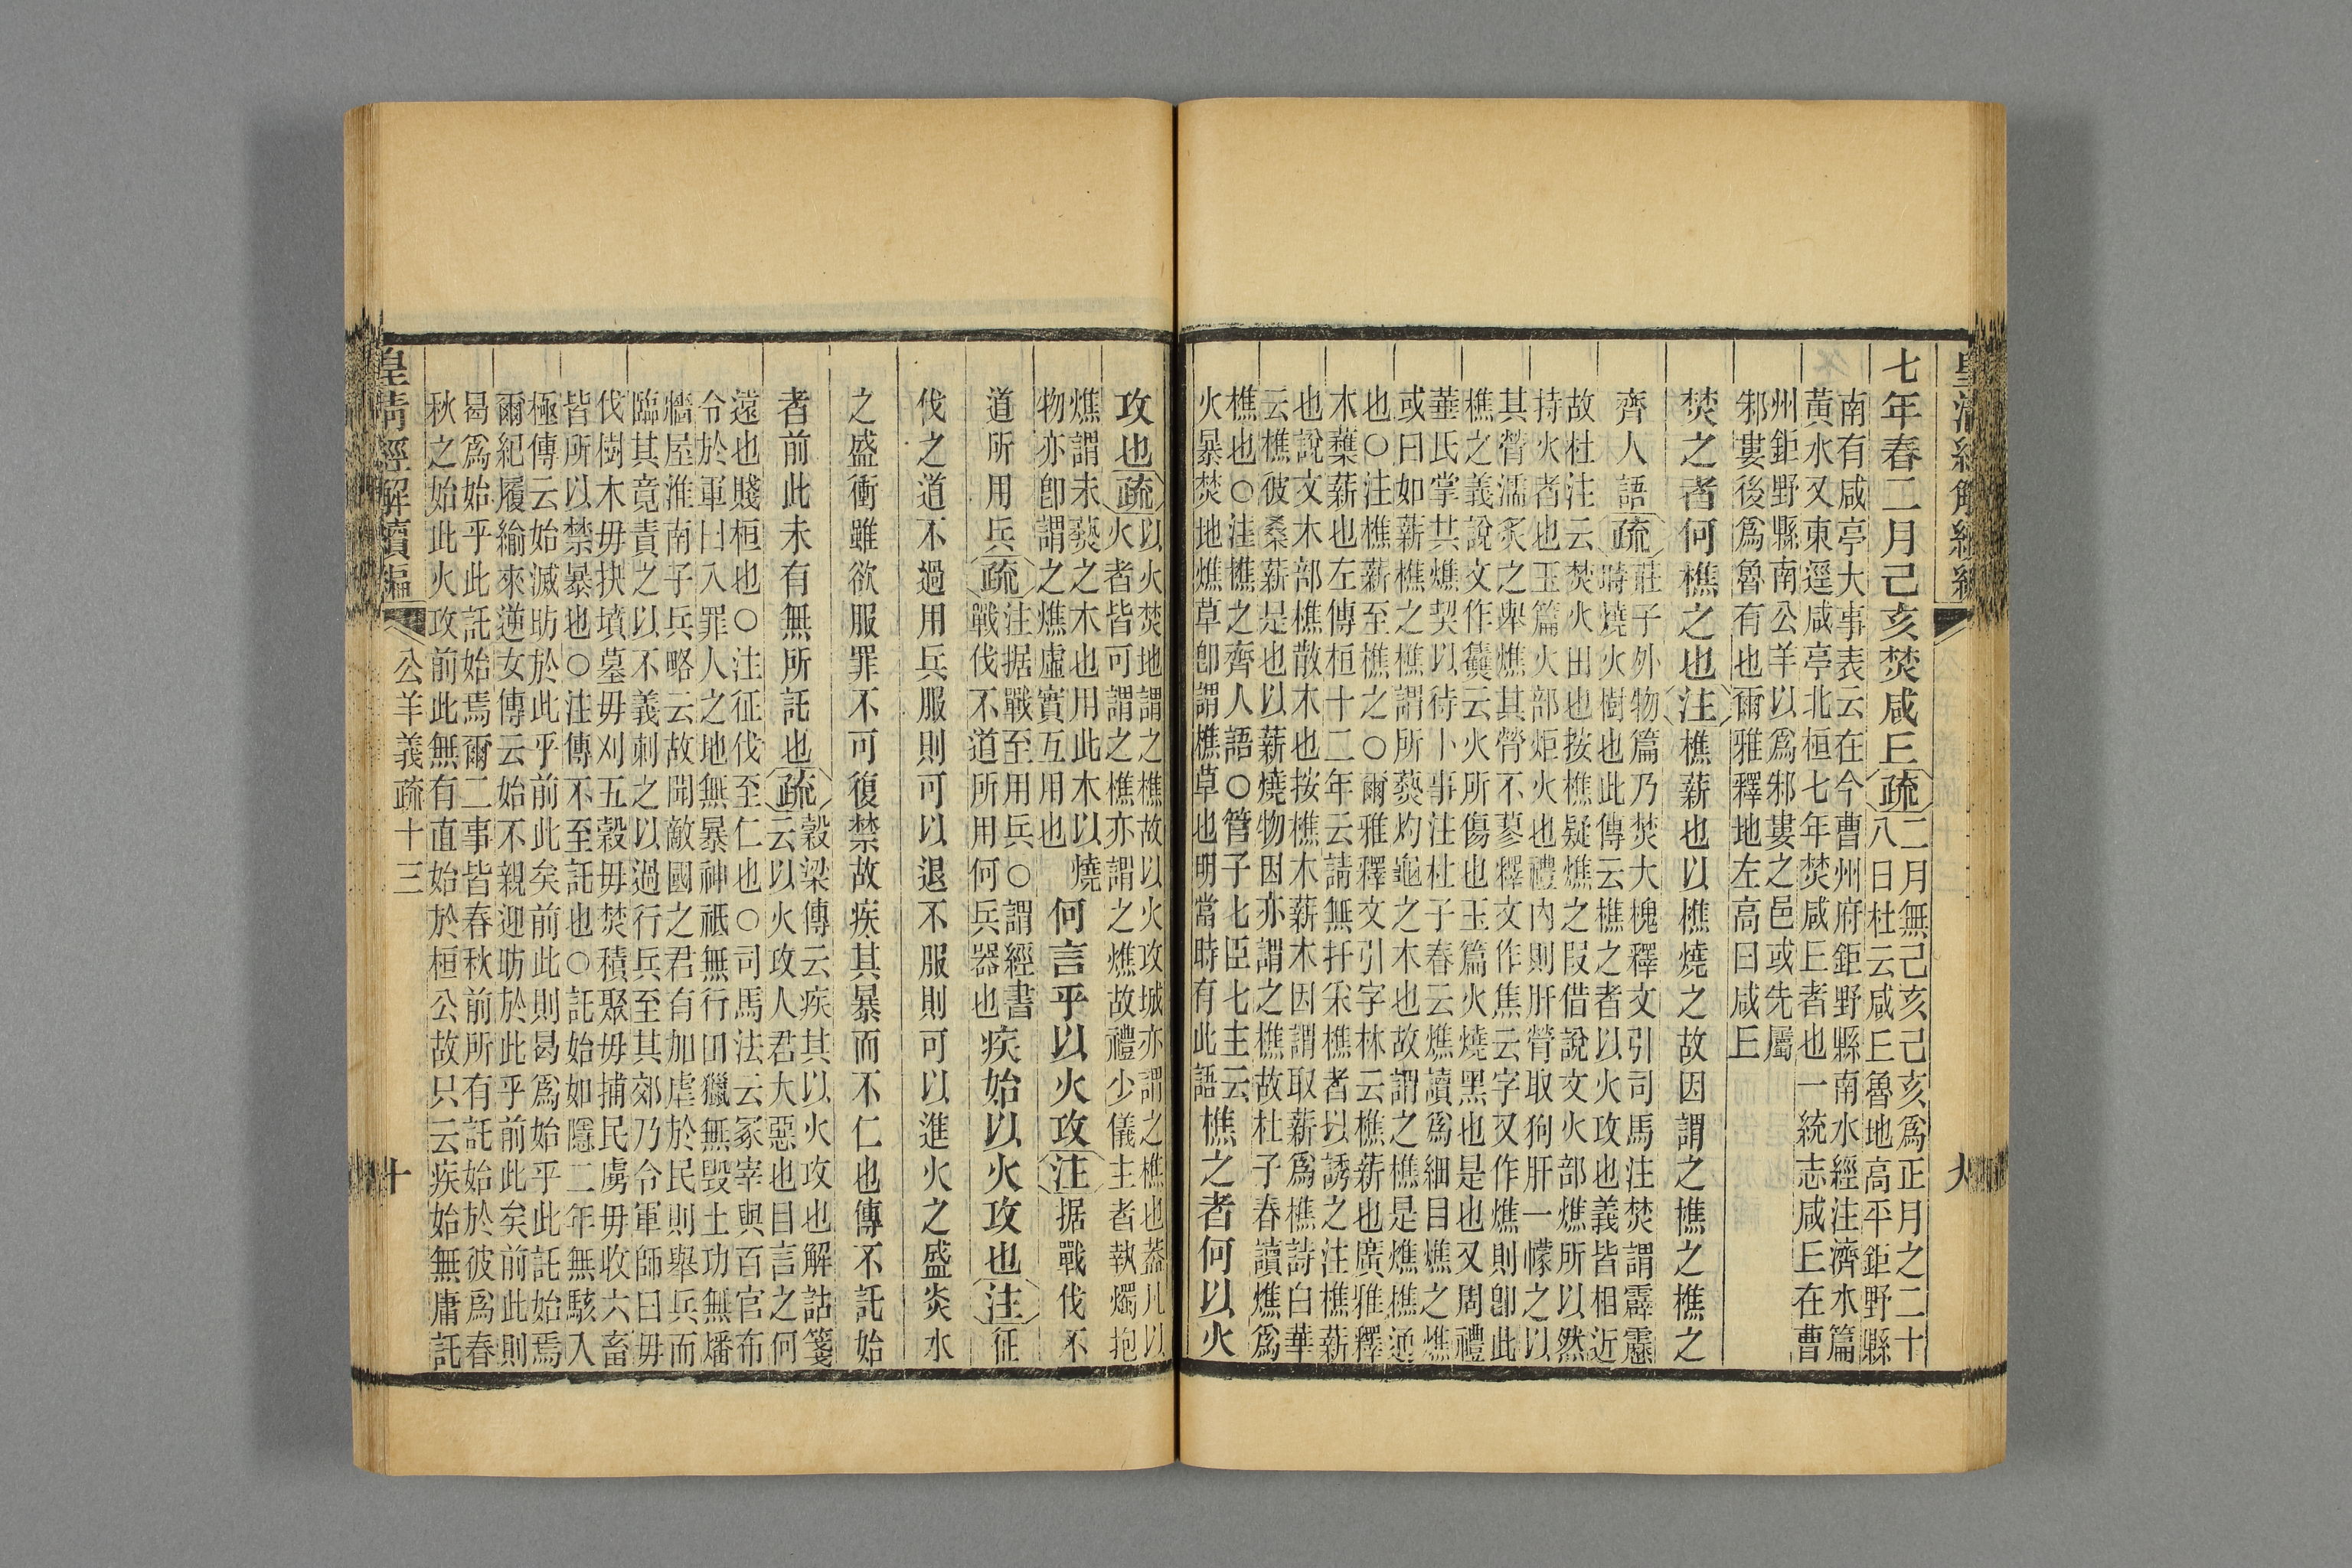 皇清經解續編
七年春二月己亥焚咸𠀉疏二月無己亥己亥爲正月之二十
八日杜云咸𠀉魯地高平鉅野縣
南有咸亭大事表云在今曹州府鉅野縣南水經注濟水篇
黃水又東逕咸亭北桓七年焚咸𠀉者也一統志咸𠀉在曹
州鉅野縣南公羊以爲邾婁之邑或先屬
邾婁後爲魯有也爾雅釋地左高曰咸𠀉
焚之者何樵之也注樵薪也以樵燒之故因謂之樵之樵之
齊人語疏莊子外物篇乃焚大槐釋文引司馬注焚謂霹靂
時燒火樹也此傳云樵之者以火攻也義皆相近
故杜注云焚火田也按樵疑燋之叚借說文火部燋所以然
持火者也玉篇火部炬火也禮內則肝膋取狗肝一幪之以
其膋濡炙之舉燋其膋不蓼釋文作焦云字又作燋則卽此
樵之義說文作㸐云火所傷也玉篇火燒黑也是也又周禮
菙氏掌共燋契以待卜事注杜子春云燋讀爲細目燋之燋
或曰如薪樵之樵謂所爇灼龜之木也故謂之樵是燋樵通
也○注樵薪至樵之○爾雅釋文引字林云樵薪也廣雅釋
木蘽薪也左傳桓十二年云請無扞采樵者以誘之注樵薪
也說文木部樵散木也按樵木薪木因謂取薪爲樵詩白華
云樵彼桑薪是也以薪燒物因亦謂之樵故杜子春讀燋爲
樵也○注樵之齊人語○管子七臣七主云
火暴焚地燋草卽謂樵草也明當時有此語樵之者何以火
九
攻也疏以火焚地謂之樵故以火攻城亦謂之樵也蓋凡以
火者皆可謂之樵亦謂之燋故禮少儀主者執燭抱
燋謂未爇之木也用此木以燒
物亦卽謂之燋虛實互用也何言乎以火攻注据戰伐不
道所用兵疏注据戰至用兵○謂經書
戰伐不道所用何兵器也疾始以火攻也注征
伐之道不過用兵服則可以退不服則可以進火之盛炎水
之盛衝雖欲服罪不可復禁故疾其暴而不仁也傳不託始
者前此未有無所託也疏穀梁傳云疾其以火攻也解詁箋
云以火攻人君大惡也目言之何
遠也賤桓也○注征伐至仁也○司馬法云冢宰與百官布
令於軍曰入罪人之地無暴神祇無行田獵無毀土功無燔
牆屋淮南子兵略云故聞敵國之君有加虐於民則舉兵而
臨其竟責之以不義刺之以過行兵至其郊乃令軍師曰毋
伐樹木毋抉墳墓毋刈五穀毋焚積聚毋捕民虜毋收六畜
皆所以禁暴也○注傳不至託也○託始如隱二年無駭入
極傳云始滅昉於此乎前此矣前此則曷爲始乎此託始焉
爾紀履緰來逆女傳云始不親迎昉於此乎前此矣前此則
曷爲始乎此託始焉爾二事皆春秋前所有託始於彼爲春
秋之始此火攻前此無有直始於桓公故只云疾始無庸託
皇清經解續編
公羊義疏十三
十